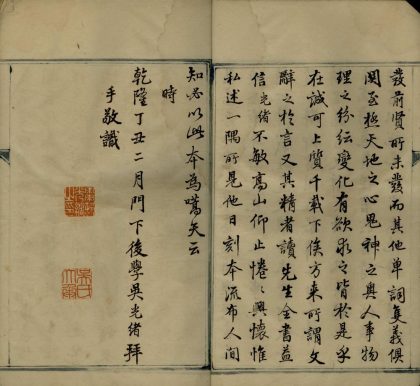 發前賢所未發而其他單詞隻義俱
関至極天地之心鬼神之奥人事物
理之紛紜變化有欲求之皆於是乎
在誠可上質千載下俟方来所謂文
辭之於言又其精者讀先生全書益
信光緒不敏高山仰止惓惓興懷惟
私述一隅所見他日刻本流布人間
知必以此本為嚆矢云
時
乾隆丁丑二月門下後學吳光緒拜
手敬識